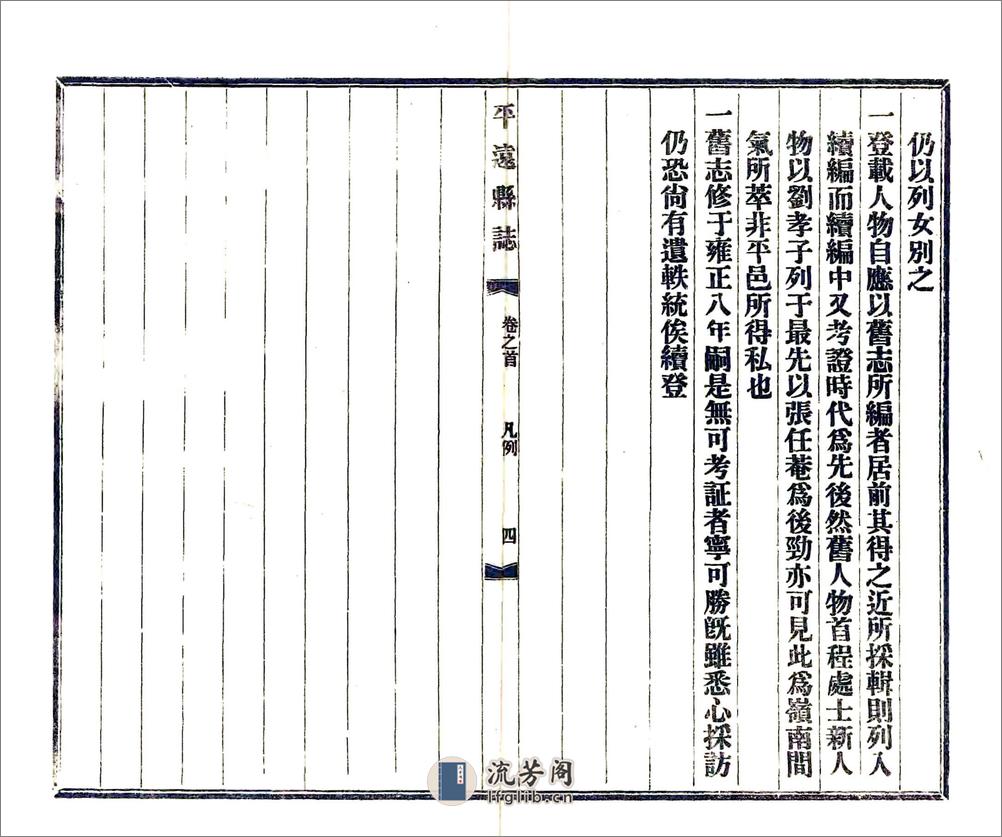 仍以列女別之
一登載人物自應以舊志所編者居前其得之近所採輯則列入
續編而續編中又考證時代爲先後然舊人物首程處士新人
物以劉孝子列于最先以張任菴爲後勁亦可見此爲嶺南間
氣所萃非平邑所得私也
一舊志修于雍正八年嗣是無可考証者寧可勝旣雖悉心採訪
仍恐尙有遺軼統俟續登
平遠縣誌
卷之首
凡例
四
流芳阁
lfglib.cn